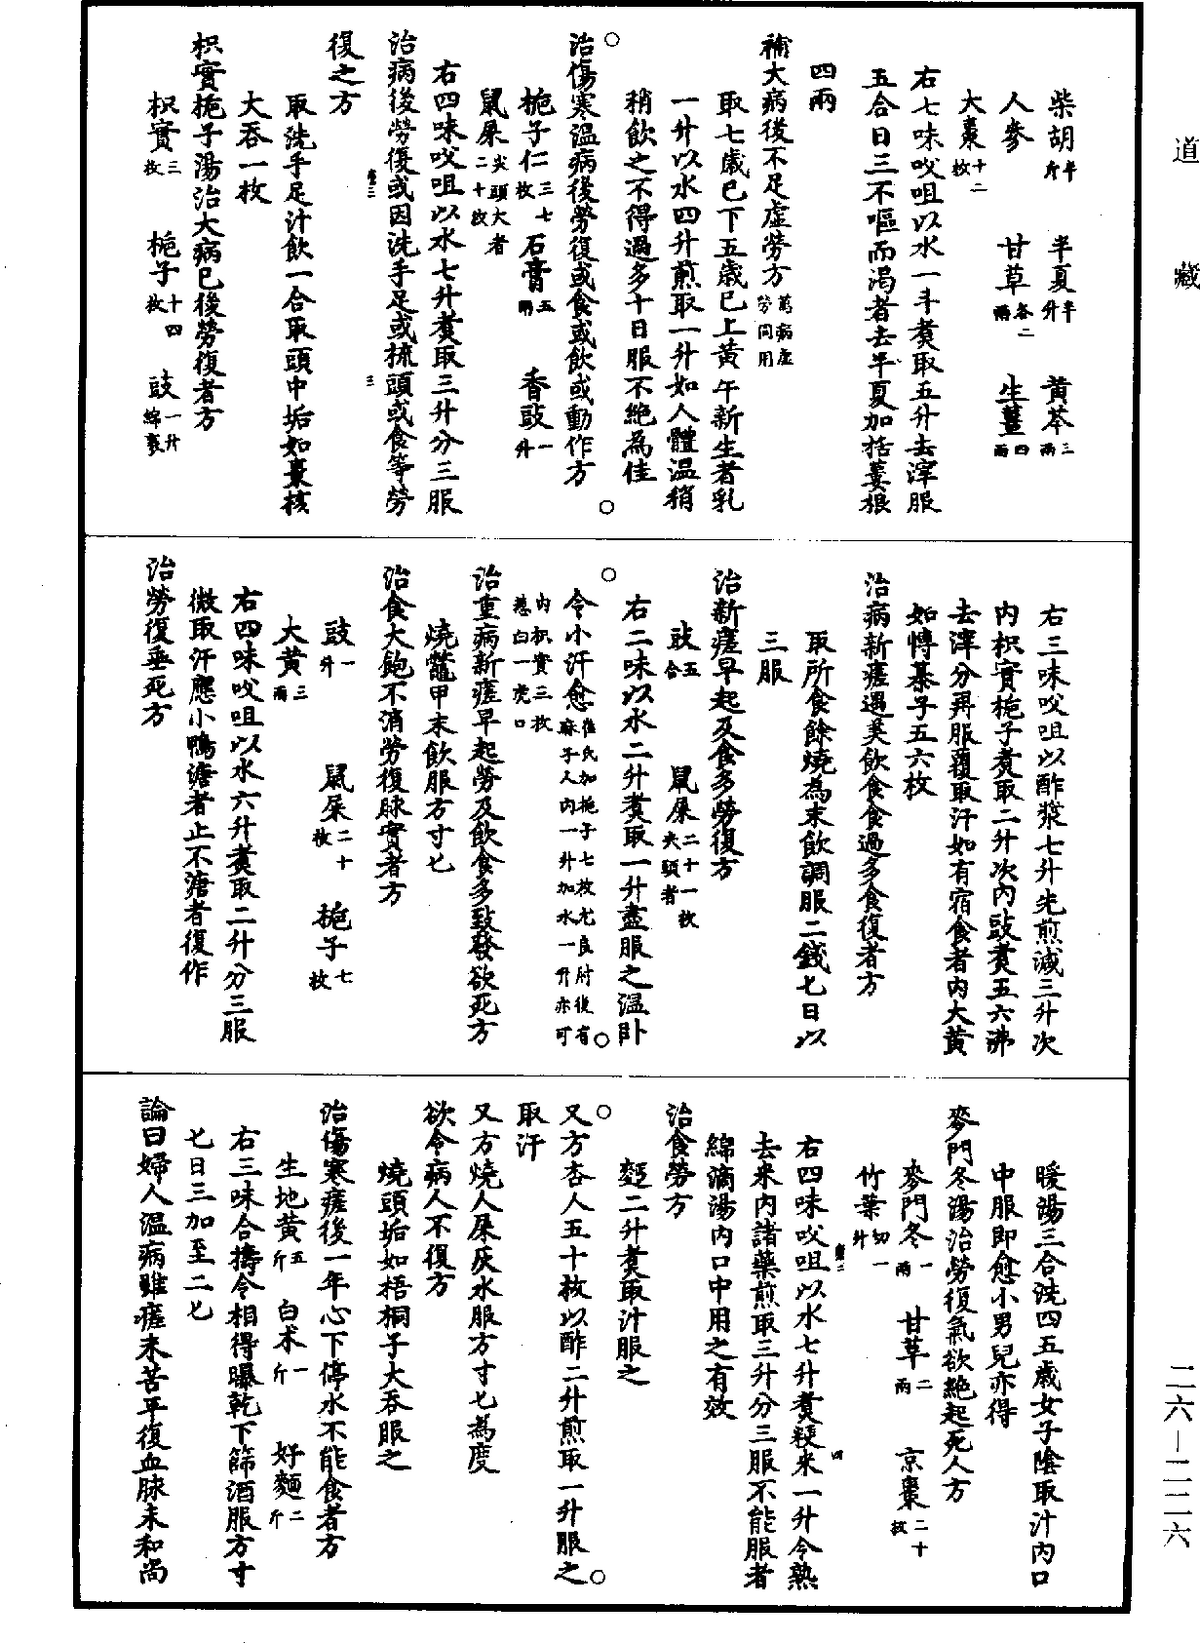 道藏
柴胡半斤 半夏半升 黃芩三兩
人參 甘草各二兩 生薑四兩
大棗十二枚
右七味㕮咀以水一斗煮取五升去滓服
五合日三不嘔而渴者去半夏加括蔞根
四兩
補大病後不足虛勞方萬病虛勞同用
取七歲已下五歲已上黃午新生者乳
一升以水四升煎取一升如人體溫稍
稍飲之不得過多十日服不絕為佳
○治傷寒溫病後勞復或食或飲或動作方
梔子仁三七枚 石膏五兩 香豉一升
鼠屎尖頭大者二十枚
右四味㕮咀以水七升煮取三升分三服○
治病後勞復或因洗手足或梳頭或食等勞
復之方
取洗手足汁飲一合取頭中垢如棗核
大吞一枚
枳實梔子湯治大病已後勞復者方
枳實三枚 梔子十四枚 豉一升綿裹
右三味㕮咀以酢漿七升先煎減三升次
內枳實梔子煮取二升次內豉煮五六沸
去滓分再服覆取汗如有宿食者內大黃
如博棊子五六枚
治病新瘥遇美飲食食過多食復者方
取所食餘燒為末飲調服二錢匕日以
三服
治新瘥早起及食多勞復方
豉五合 鼠屎二十一枚尖頭者
右二味以水二升煮取一升盡服之溫卧
○令小汗愈崔氏加梔子七枚尤良肘後有麻子人內一升加水一升亦可○
內枳實三枚葱白一虎口
治重病新瘥早起勞及飲食多致發欲死方
燒鱉甲末飲服方寸匕
治食大飽不消勞復脉實者方
豉一升 鼠屎二十枚 梔子七枚
大黃三兩
右四味㕮咀以水六升煮取二升分三服
微取汗應小鴨溏者止不溏者復作
治勞復垂死方
暖湯三合洗四五歲女子陰取汁內口
中服即愈小男兒亦得
麥門冬湯治勞復氣欲絕起死人方
麥門冬一兩 甘草二兩 京棗二十枚
竹葉切一升
右四味㕮咀以水七升煮粳米一升令熟
去米內諸藥煎取三升分三服不能服者
綿滴湯內口中用之有效
治食勞方
麴二升煮取汁服之
○又方杏人五十枚以酢二升煎取一升服之○
取汗
又方燒人屎灰水服方寸匕為度
欲令病人不復方
燒頭垢如梧桐子大吞服之
治傷寒瘥後一年心下停水不能食者方
生地黃五斤 白朮一斤 好麵二斤
右三味合擣令相得曝乾下篩酒服方寸
匕日三加至二匕
論曰婦人溫病雖瘥未苦平復血脉未和尚
二六—二二六